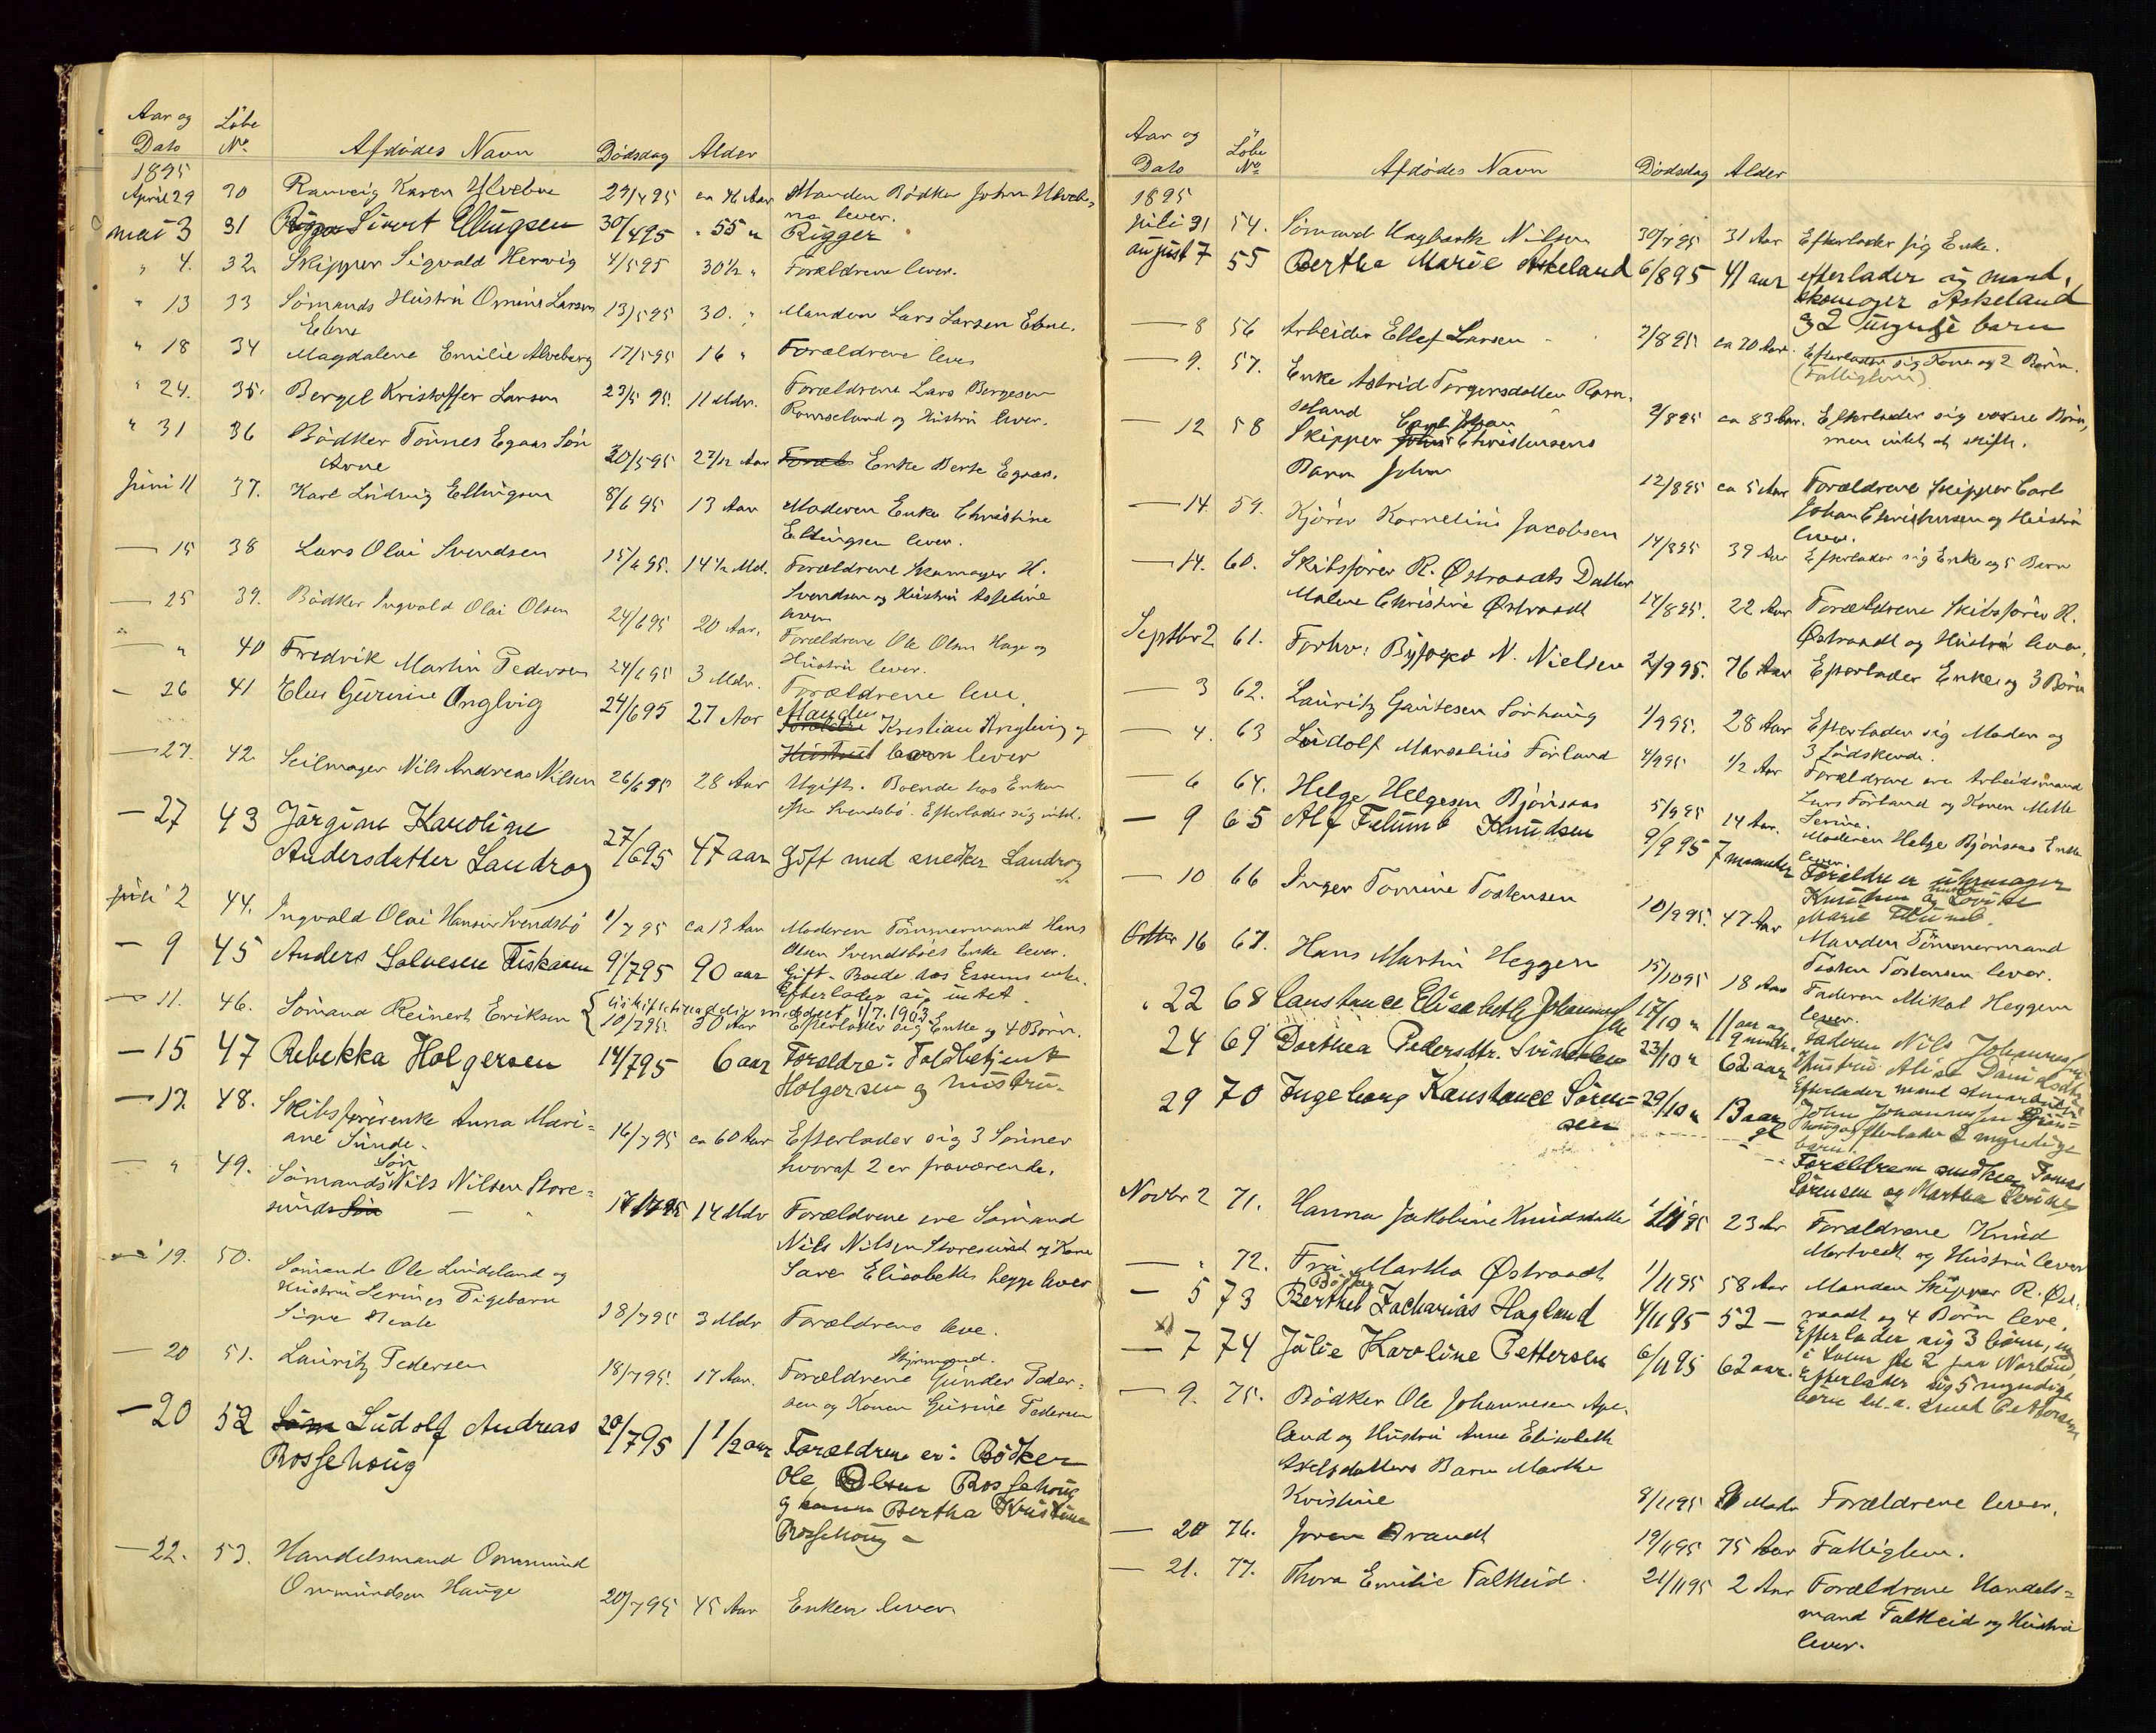 Aar og Dato Löbe No. Afdödes Navn Dödsdag Alder
1895
April 29 30 Ranveig Karen 29/4 95 ca 76 Aar Manden Bödker John
na lever.
mai 3 31 Sivert Ellingsen 30/4 95 " 55 " Rigger
" 4. 32 Skipper Sigvald Hervig 4/5 95 30 1/2 " Forældrene lever.
" 13 33 Sömands Hustru Omine Larsen 13/5 95 30. " Manden Lars Larsen Ebne.
Ebne
" 18 34 Magdalene Emilie Alveberg 17/5 95 16 " Forældrene leve
" 24. 35. Bergel Kristoffer Larsen 23/5 95. 11 Mdr. Forældrene Lars Bergesen
og Hustru lever.
" 31 36 Bödker Tönnes Egaas Sön 30/5 95 2 7/12 Aar Enke Berte Egaas.
Arne
Juni 11 37. Karl Ludvig Ellingsen 8/6 95 13 Aar Moderen Enke Christine
Ellingsen lever.
— 15 38 Lars Olai Svendsen 15/6 95. 14 1/2 Md. Forældrene Skomager H.
Svendsen og Hustru Asseline
leve
— 25 39. Bödker Ingvald Olai Olsen 24/6 95 20 Aar. Forældrene Ole Olsen Hage og
Hustru lever.
— " 40 Fredrik Martin Pedersen 24/6 95 3 Mdr. Forældrene leve.
— 26 41 Elen Gurine Anglvig 24/6 95 27 Aar Manden Kristian Anglvig og
barn lever
— 27. 42. Seilmager Nils Andreas Nilsen 26/6 95 28 Aar Ugift. Boende hos Enken
efter Svendsbö. Efterlader sig intet.
— 27 43 Jörgine Karoline
Andersdatter Landrog 27/6 95 47 aar Gift med snedker Landrog
juli 2 44. Ingvald Olai Hansen Svendsbö 1/7 95 ca 13 Aar Moderen Tömmermand Hans
Olsen Svendsböes Enke lever.
— 9 45 Anders Salvesen Fiskaaen 9/7 95 90 aar Gift. Boede hos Essems enke.
Efterlader sig intet.
— 11. 46. Sömand Reinert Eriksen 10/7 95. 30 Aar Efterlader sig Enke og 4 Börn.
— 15 47 Rebekka Holgersen 14/7 95 6 aar Foraldre: Toldbetjent
Holgersen og hustru.
— 17. 48. Skibsförerenke Anna Mari=
ane Sunde. 16/7 95 ca 60 Aar Efterlader sig 3 Sönner
hvoraf 2 er fraværende.
— " 49. Sömands Sön Nils Nilsen Store=
sunds 17/7 95 14 Mdr Forældrene ere Sömand
Nils Nilsen Storesund og Kone
Sara Elisabeth begge lever
— 19. 50. Sömand Ole Lindeland og
Hustru Serines Pigebarn
Signe 18/7 95 3 Mdr Forældrene leve.
— 20 51. Lauritz Pedersen 18/7 95. 17 Aar. Forældrene Styrmand. Gunder Peder=
sen og Konen Gurine Pedersen
— 20 52 Ludolf Andreas 20/7 95 1 1/2 aar Forældrene er: Bödker
Rossehoug Ole Olsen Rossehoug
og Bertha Kristine
Rossehoug -
— 22. 53. Handelsmand Ommund
Ommundsen Hauge 20/7 95 45 Aar Enken lever
Aar og Dato Löbe No. Afdödes Navn Dödsdag Alder
1895
juli 31 54. Sömand Haybarth Nilsen 30/7 95 31 Aar Efterlader sig Enke.
august 7 55 Bertha Marie Askeland 6/8 95 41 aar efterlader sig mand,
skomager Askeland
og 2 umyndige barn
— 8 56 Arbeider Ellef Larsen 7/8 95 ca 70 Aar. Efterlader sig Kone og 2 Börn.
(Fattiglem)
— 9. 57. Enke Astrid Torgersdatter Ram=
seland 9/8 95 ca 83 Aar. Efterlader sig voxne Börn,
men intet at skifte.
— 12 58 Skipper Carl Johan Christensens
Barn Johan 12/8 95 ca 5 Aar Forældrene Skipper Carl
Johan Christensen og Hustru
lever.
— 14. 59. Kjörer Kornelius Jacobsen 14/8 95 39 Aar Efterlader sig Enke og 5 Barn
— 14. 60. Skibsförer R. Östraadts Datter
Malene Christine Östraadt 14/8 95. 22 Aar Forældrene Skibsförer R.
Östraadt og Hustru leve.
Septbr 2 61. Forhv. Byfoged N. Nielsen 2/9 95. 76 Aar Efterlader Enke og 3 Börn
— 3 62. Lauritz Gautesen Sörhaug 1/9 95. 28 Aar Efterlader sig Moder og
3 Södskende.
— 4. 63 Ludolf Marselius Förland 4/9 95 1/2 Aar Forældrene ere Arbeidsmand
Lars Förland og Konen Mette
Serina.
— 6 64. Helge Helgesen Björnsaas 5/9 95 14 Aar. Moderen Helge Björnsaas Enke
lever.
— 9 65 Alf Felumb Knudsen 9/9 95 7 maaneder Foraldre er uhrmager
Knudsen og hustru Lovise
Marie Felumb.
— 10 66 Inger Tomine Tostensen 10/9 95. 47 Aar Manden Tömmermand
Tosten Tostensen lever.
Octbr 16 67. Hans Martin Heggen 15/10 95 18 Aar Faderen Mikal Heggem
lever.
" 22 68 Constance Elisabeth Johannessen 17/10 " 11 aar og 9 mndr. Faderen Nils Johannessen
Hustru Alise Danielsdtr
24 69 Dorthea Pedersdtr. Svindalen 23/10 " 62 aar Efterlader mand
John Johannessen
efterlader 2 myndige
barn.
29 70 Ingeborg Konstance Sören=
sen 29/10 " 13 aar gl Forældrene snedker Tomas
Sörensen og Martha Serine
Novbr 2 71. Hanna Jakobine Knudsdatter 95 23 Ar Forældrene Knud
Mortvedt og Hustru lever
— " 72. Fru Martha Östraadt 1/11 95 58 Aar Manden Skipper R. Öst=
raadt og 4 Börn leve.
— 5 73 Bödker Berthel Zacharias Hagland 4/11 95 52 — Efterlader sig 3 börn,
— 7 74 Julie Karoline Pettersen 6/11 95 62 aar. Efterlader sig 5 myndige
börn bl. a. Pettersen
— 9. 75. Bödker Ole Johannesen Ape=
land og Hustru Anne Elisabeth
Axelsdatters Barn Marthe
Kristine 9/11 95 Mndr Forældrene lever.
— 20 76. Joren Brandt 19/11 95 75 Aar Fattiglem.
— 21. 77. Thora Emilie Falkeid. 21/11 95 2 Aar Forældrene Handels=
mand Falkeid og Hustru
lever.